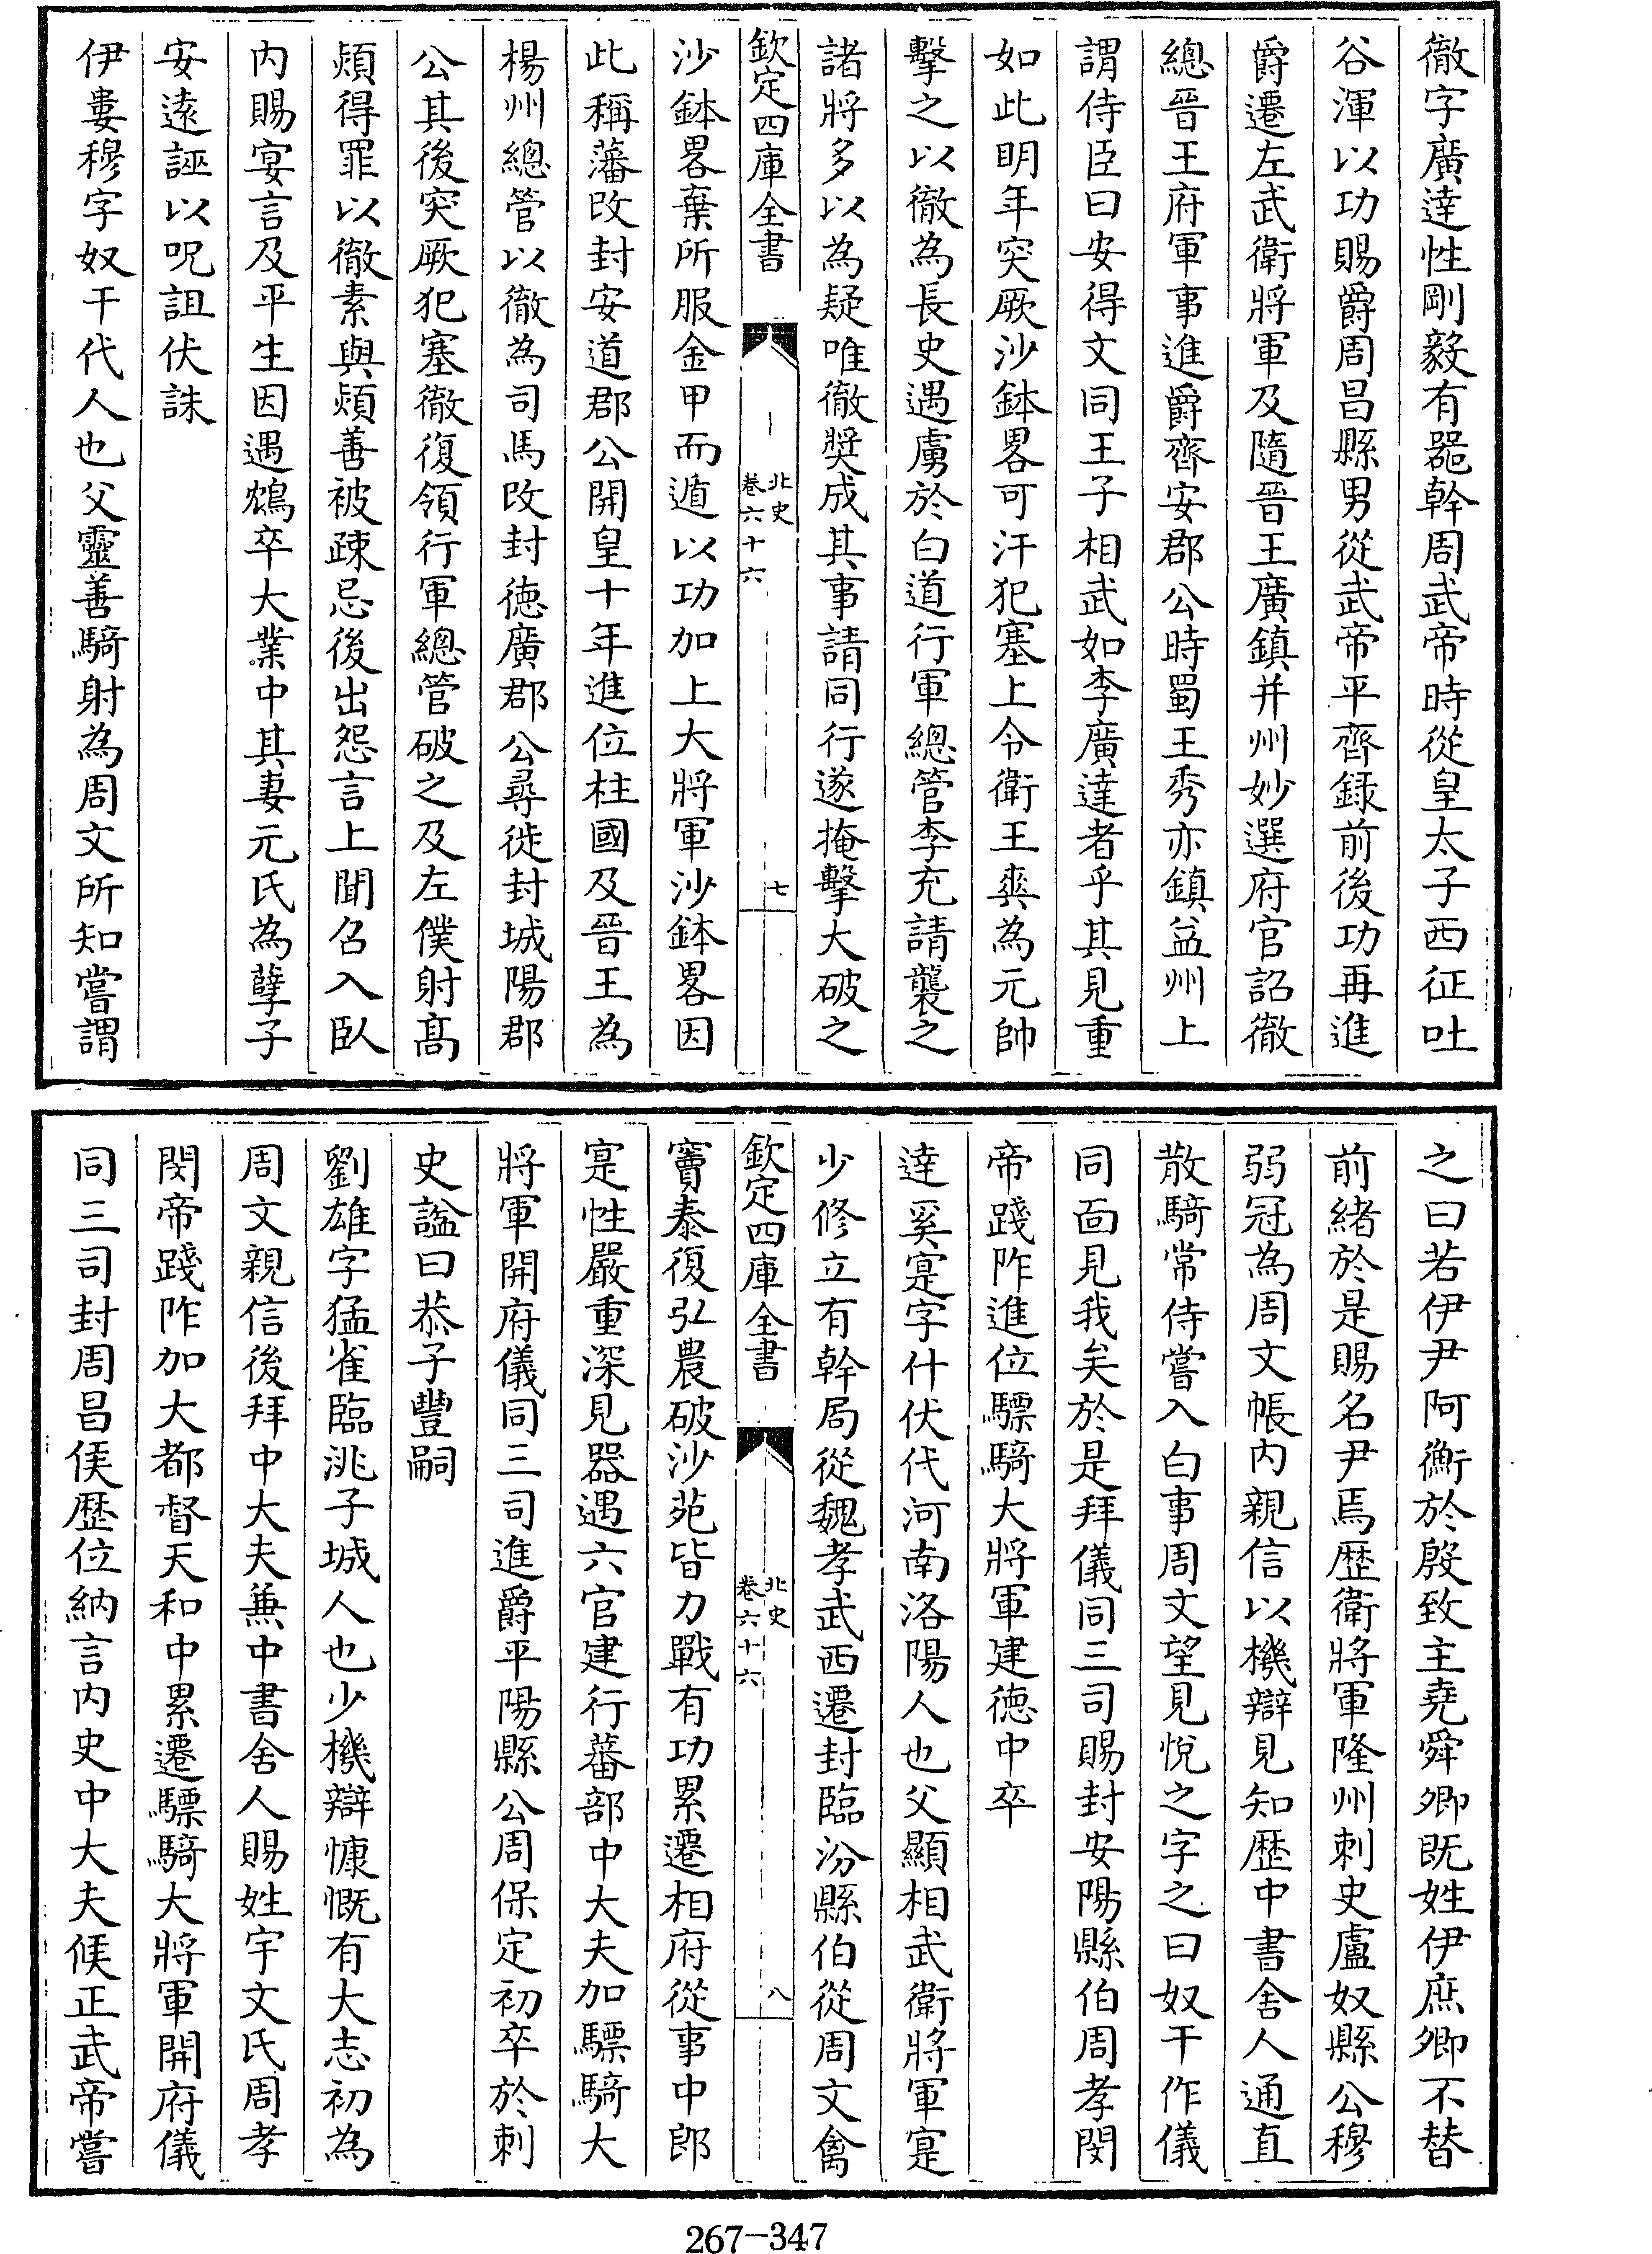 徹字廣達性剛毅有器幹周武帝時從皇太子西征吐
谷渾以功賜爵周昌縣男從武帝平齊録前後功再進
爵遷左武衛將軍及隨晉王廣鎮并州妙選府官詔徹
總晉王府軍事進爵齊安郡公時蜀王秀亦鎮益州上
謂侍臣曰安得文同王子相武如李廣達者乎其見重
如此明年突厥沙鉢畧可汗犯塞上令衛王爽為元帥
擊之以徹為長史遇虜於白道行軍總管李充請襲之
諸將多以為疑唯徹奬成其事請同行遂掩擊大破之
欽定四庫全書
北史
卷六十六
七
沙鉢畧棄所服金甲而遁以功加上大將軍沙鉢畧因
此稱藩改封安道郡公開皇十年進位柱國及晉王為
楊州總管以徹為司馬改封德廣郡公尋徙封城陽郡
公其後突厥犯塞徹復領行軍總管破之及左僕射髙
熲得罪以徹素與熲善被疎忌後出怨言上聞召入臥
内賜宴言及平生因遇鴆卒大業中其妻元氏為孽子
安遠誣以呪詛伏誅
伊婁穆字奴干代人也父靈善騎射為周文所知嘗謂
之曰若伊尹阿衡於殷致主堯舜卿既姓伊庶卿不替
前緒於是賜名尹焉歴衛將軍隆州刺史盧奴縣公穆
弱冠為周文帳内親信以機辯見知歴中書舍人通直
散騎常侍嘗入白事周文望見悅之字之曰奴干作儀
同面見我矣於是拜儀同三司賜封安陽縣伯周孝閔
帝踐阼進位驃騎大將軍建德中卒
達奚寔字什伏代河南洛陽人也父顯相武衛將軍寔
少修立有幹局從魏孝武西遷封臨汾縣伯從周文禽
欽定四庫全書
北史
卷六十六
八
竇泰復弘農破沙苑皆力戰有功累遷相府從事中郎
寔性嚴重深見器遇六官建行蕃部中大夫加驃騎大
將軍開府儀同三司進爵平陽縣公周保定初卒於刺
史諡曰恭子豐嗣
劉雄字猛雀臨洮子城人也少機辯慷慨有大志初為
周文親信後拜中大夫兼中書舍人賜姓宇文氏周孝
閔帝踐阼加大都督天和中累遷驃騎大將軍開府儀
同三司封周昌侯歴位納言内史中大夫候正武帝嘗
267-347